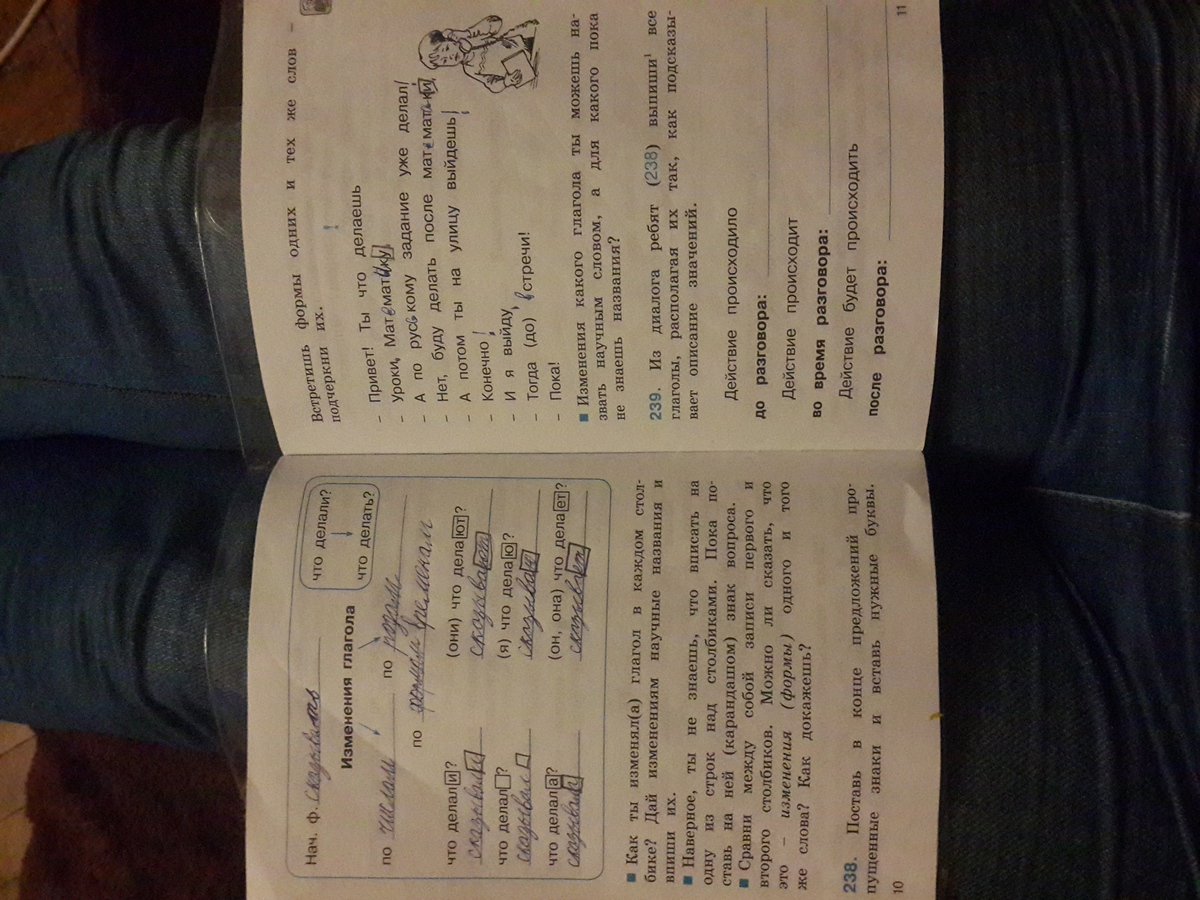 Нач. ф. сказывать
Изменения глагола
что делали?
что делать?
по числам
по родам
по временам
что делал и?
сказывали
(они) что дела ют?
сказывают
что делал ?
сказывал
(я) что дела ю?
сказываю
что делал а?
сказывала
(он, она) что дела ет?
сказывает
■ Как ты изменял(а) глагол в каждом стол-
бике? Дай изменениям научные названия и
впиши их.
■ Наверное, ты не знаешь, что вписать на
одну из строк над столбиками. Пока по-
ставь на ней (карандашом) знак вопроса.
■ Сравни между собой записи первого и
второго столбиков. Можно ли сказать, что
это – изменения (формы) одного и того
же слова? Как докажешь?
238. Поставь в конце предложений про-
пущенные знаки и вставь нужные буквы.
10
Встретишь формы одних и тех же слов –
подчеркни их.
– Привет! Ты что делаешь
– Уроки, Математику
– А по рускому задание уже делал
– Нет, буду делать после математики
– А потом ты на улицу выйдешь
– Конечно!
– И я выйду
– Тогда (до) встречи!
– Пока!
■ Изменения какого глагола ты можешь на-
звать научным словом, а для какого пока
не знаешь названия?
239. Из диалога ребят (238) выпиши¹ все
глаголы, располагая их так, как подсказы-
вает описание значений.
Действие происходило
до разговора:
Действие происходит
во время разговора:
Действие будет происходить
после разговора:
11